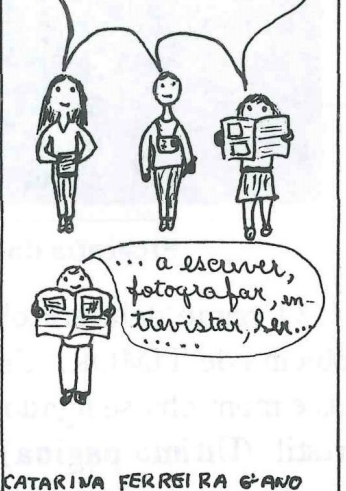 ... a escrever,
fotografar, en-
trevistar, ler...
.....
CATARINA FERREIRA 6ºANO